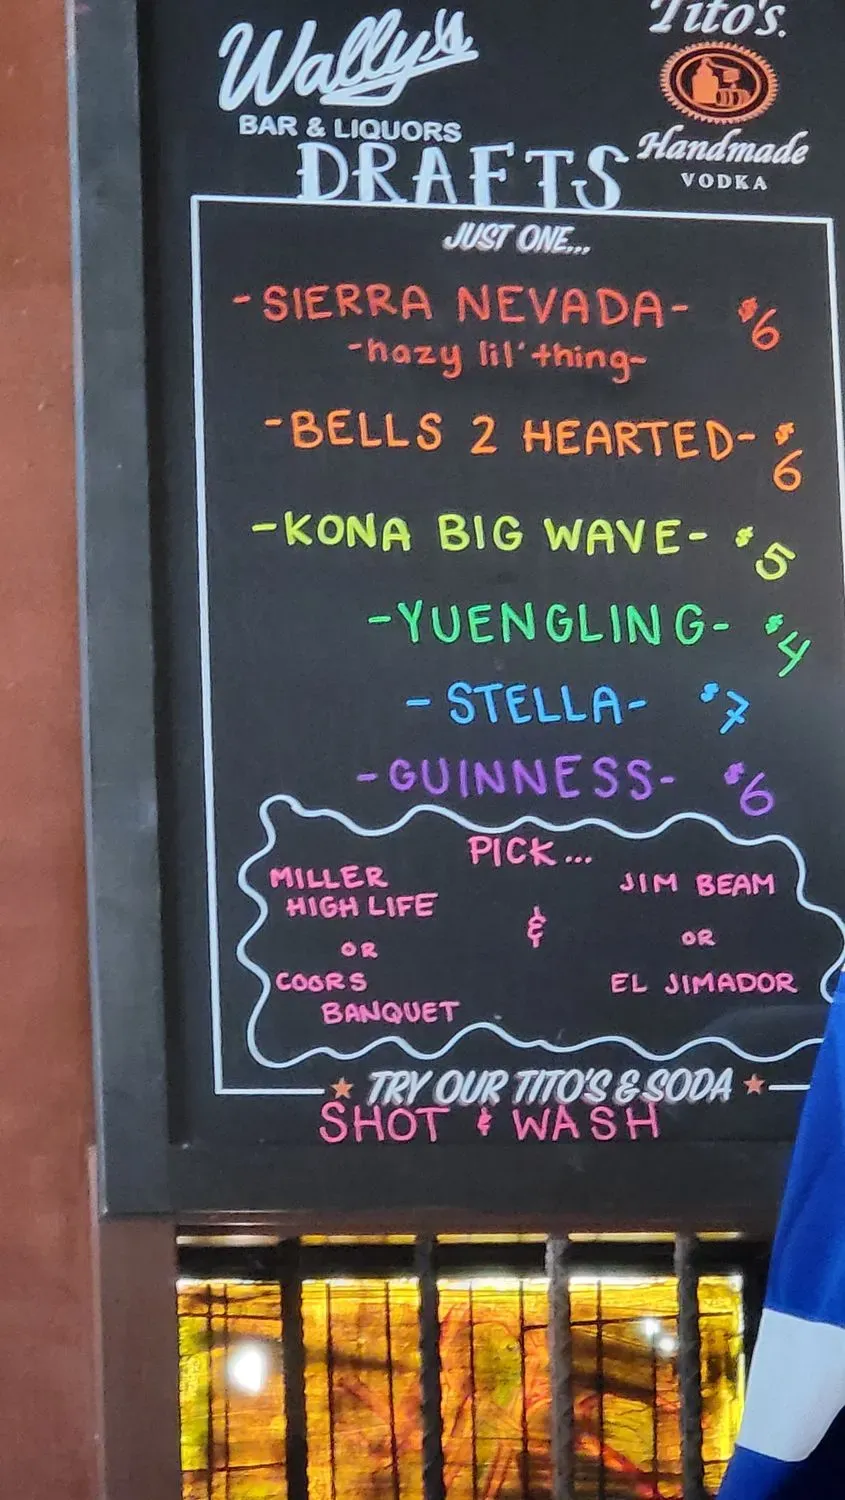 Wally's
BAR & LIQUORS
Tito's.
Handmade
VODKA
DRAFTS
JUST ONE...
-SIERRA NEVADA- $6
-hazy lil' thing-
-BELLS 2 HEARTED- $6
-KONA BIG WAVE- $5
-YUENGLING- $4
-STELLA- $7
-GUINNESS- $6
PICK...
MILLER
HIGH LIFE
OR
COORS
BANQUET
&
JIM BEAM
OR
EL JIMADOR
★ TRY OUR TITO'S & SODA ★
SHOT & WASH